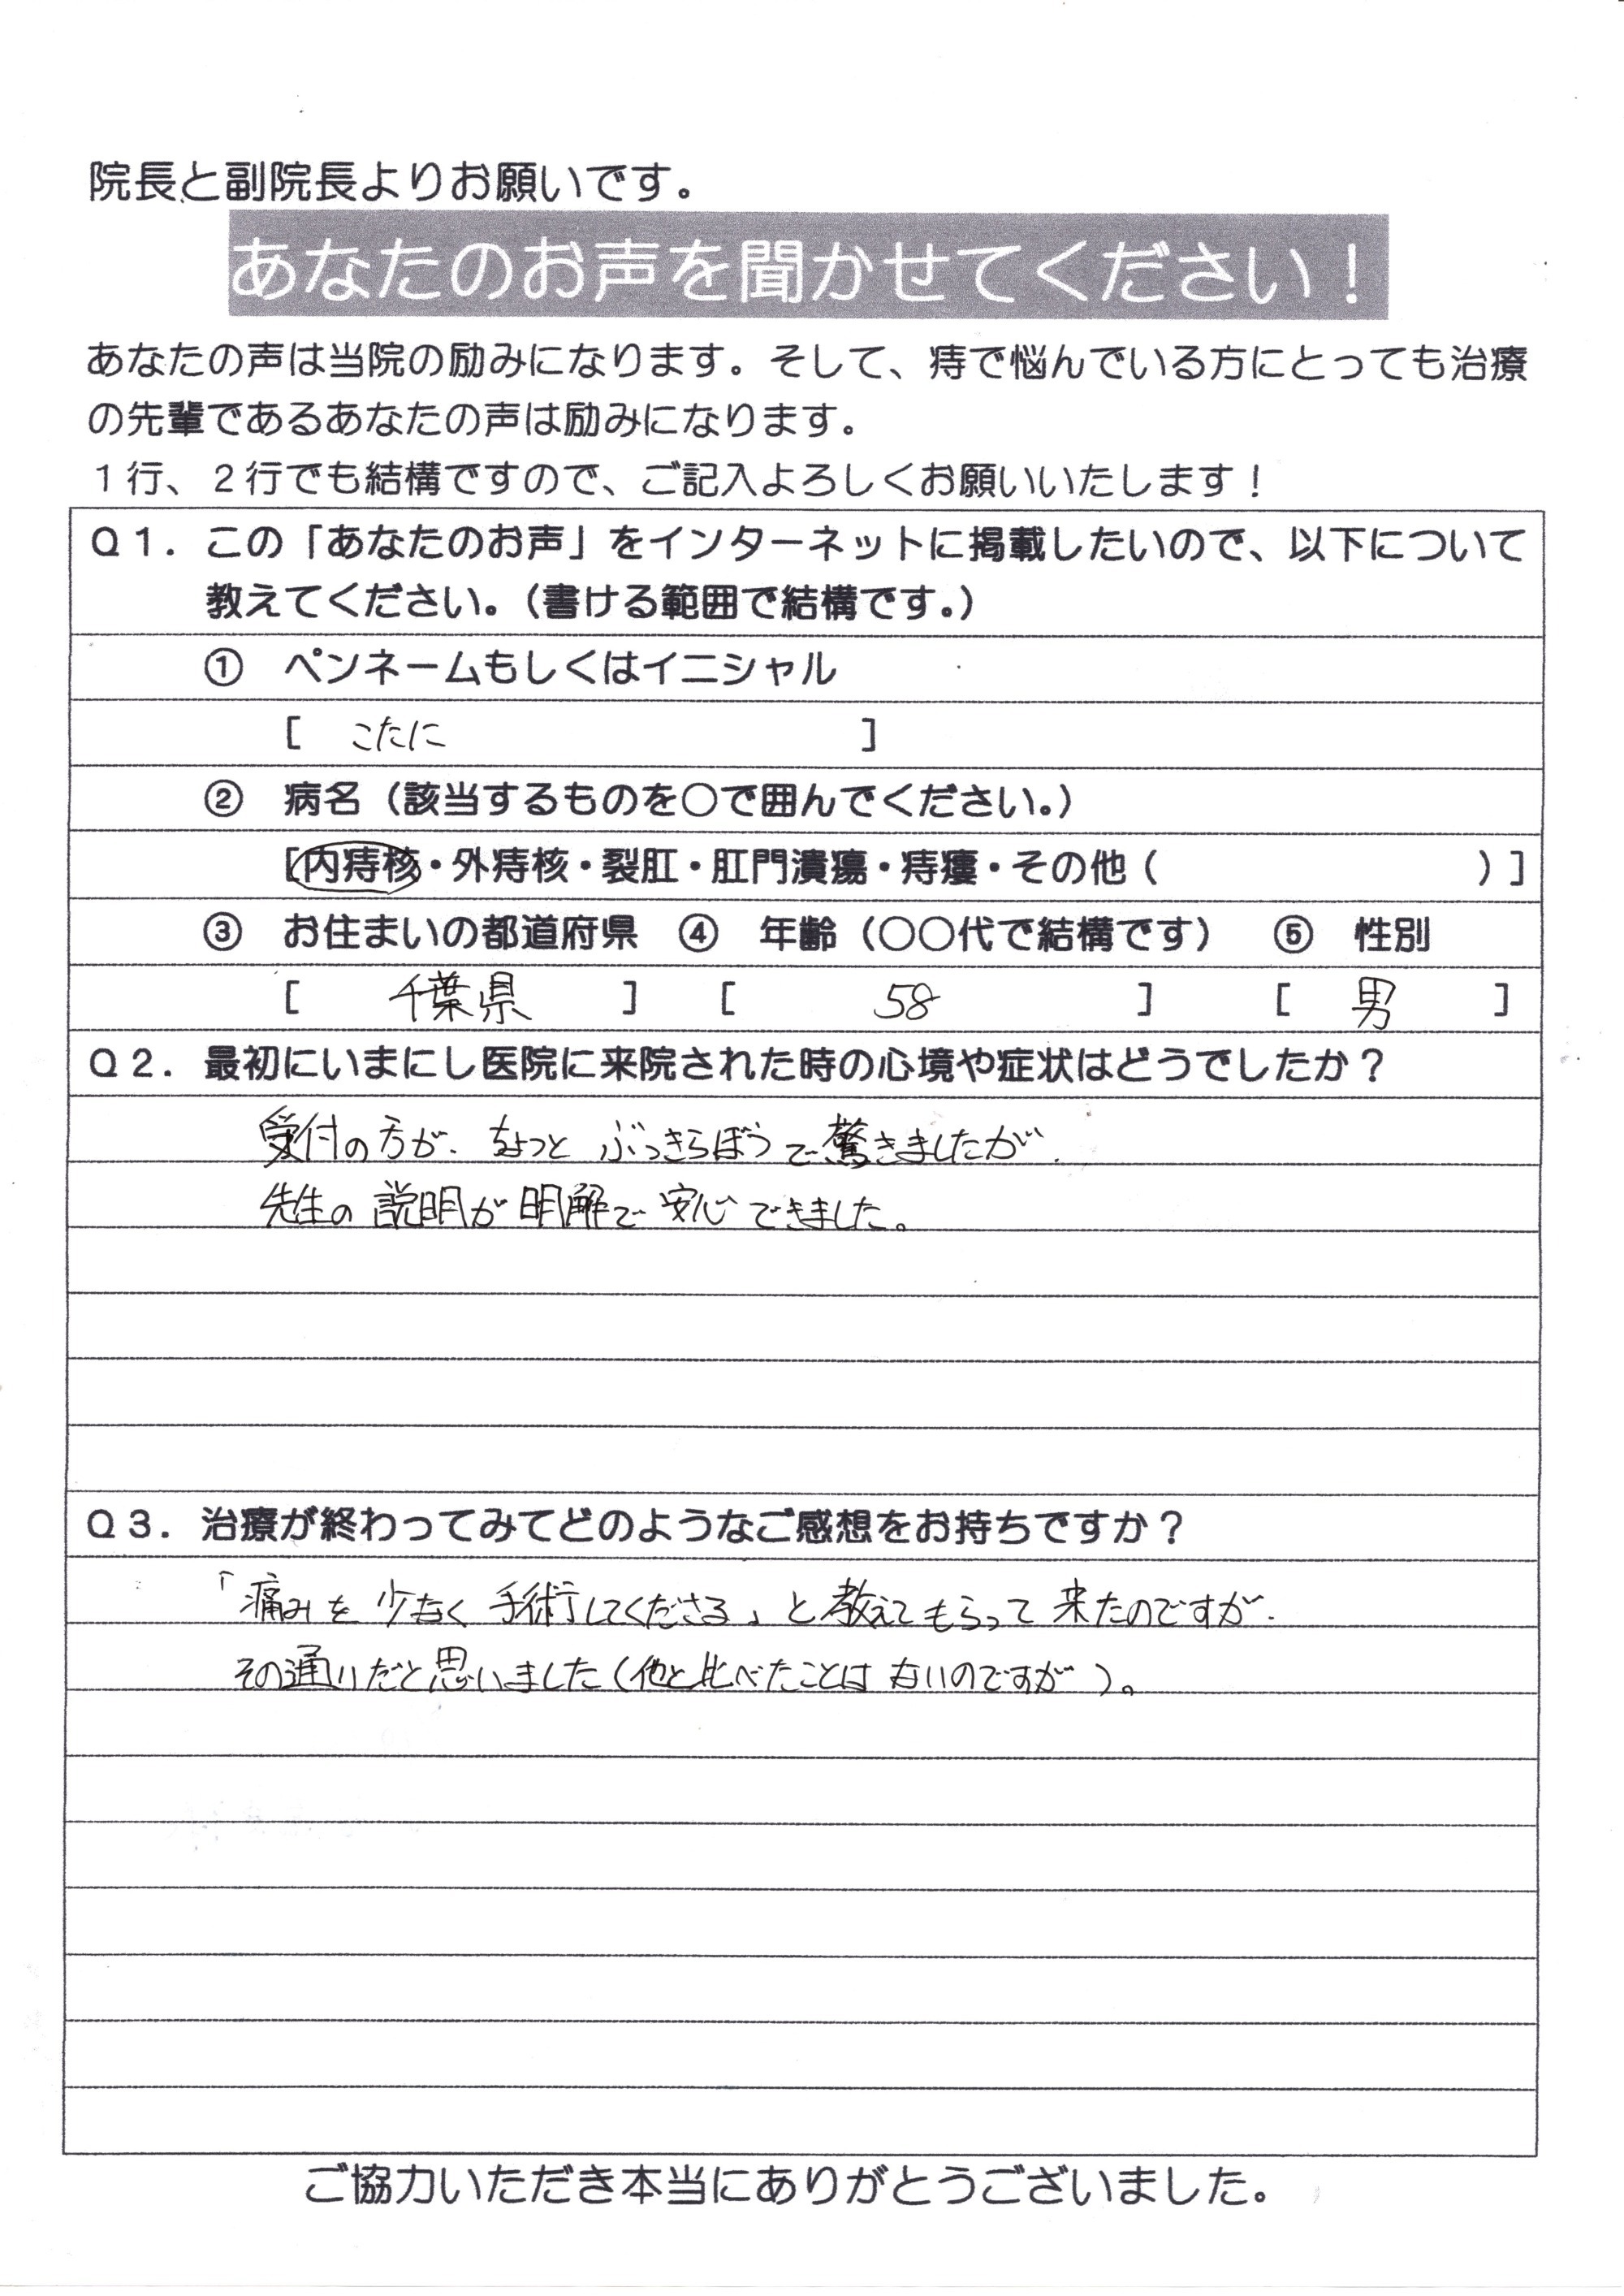 院長と副院長よりお願いです。
あなたのお声を聞かせてください！
あなたの声は当院の励みになります。そして、痔で悩んでいる方にとっても治療
の先輩であるあなたの声は励みになります。
１行、２行でも結構ですので、ご記入よろしくお願いいたします！
Ｑ１．この「あなたのお声」をインターネットに掲載したいので、以下について
教えてください。（書ける範囲で結構です。）
①　ペンネームもしくはイニシャル
［　こたに　］
②　病名（該当するものを○で囲んでください。）
［内痔核・外痔核・裂肛・肛門潰瘍・痔瘻・その他（　　　）］
③　お住まいの都道府県　④　年齢（○○代で結構です）　⑤　性別
［　千葉県　］　［　58　］　［　男　］
Ｑ２．最初にいまにし医院に来院された時の心境や症状はどうでしたか？
受付の方が、ちょっと ぶっきらぼうで驚きましたが、
先生の説明が明解で安心できました。
Ｑ３．治療が終わってみてどのようなご感想をお持ちですか？
「痛みを少なく手術してくださる」と教えてもらって来たのですが、
その通りだと思いました（他と比べたことはないのですが）。
ご協力いただき本当にありがとうございました。